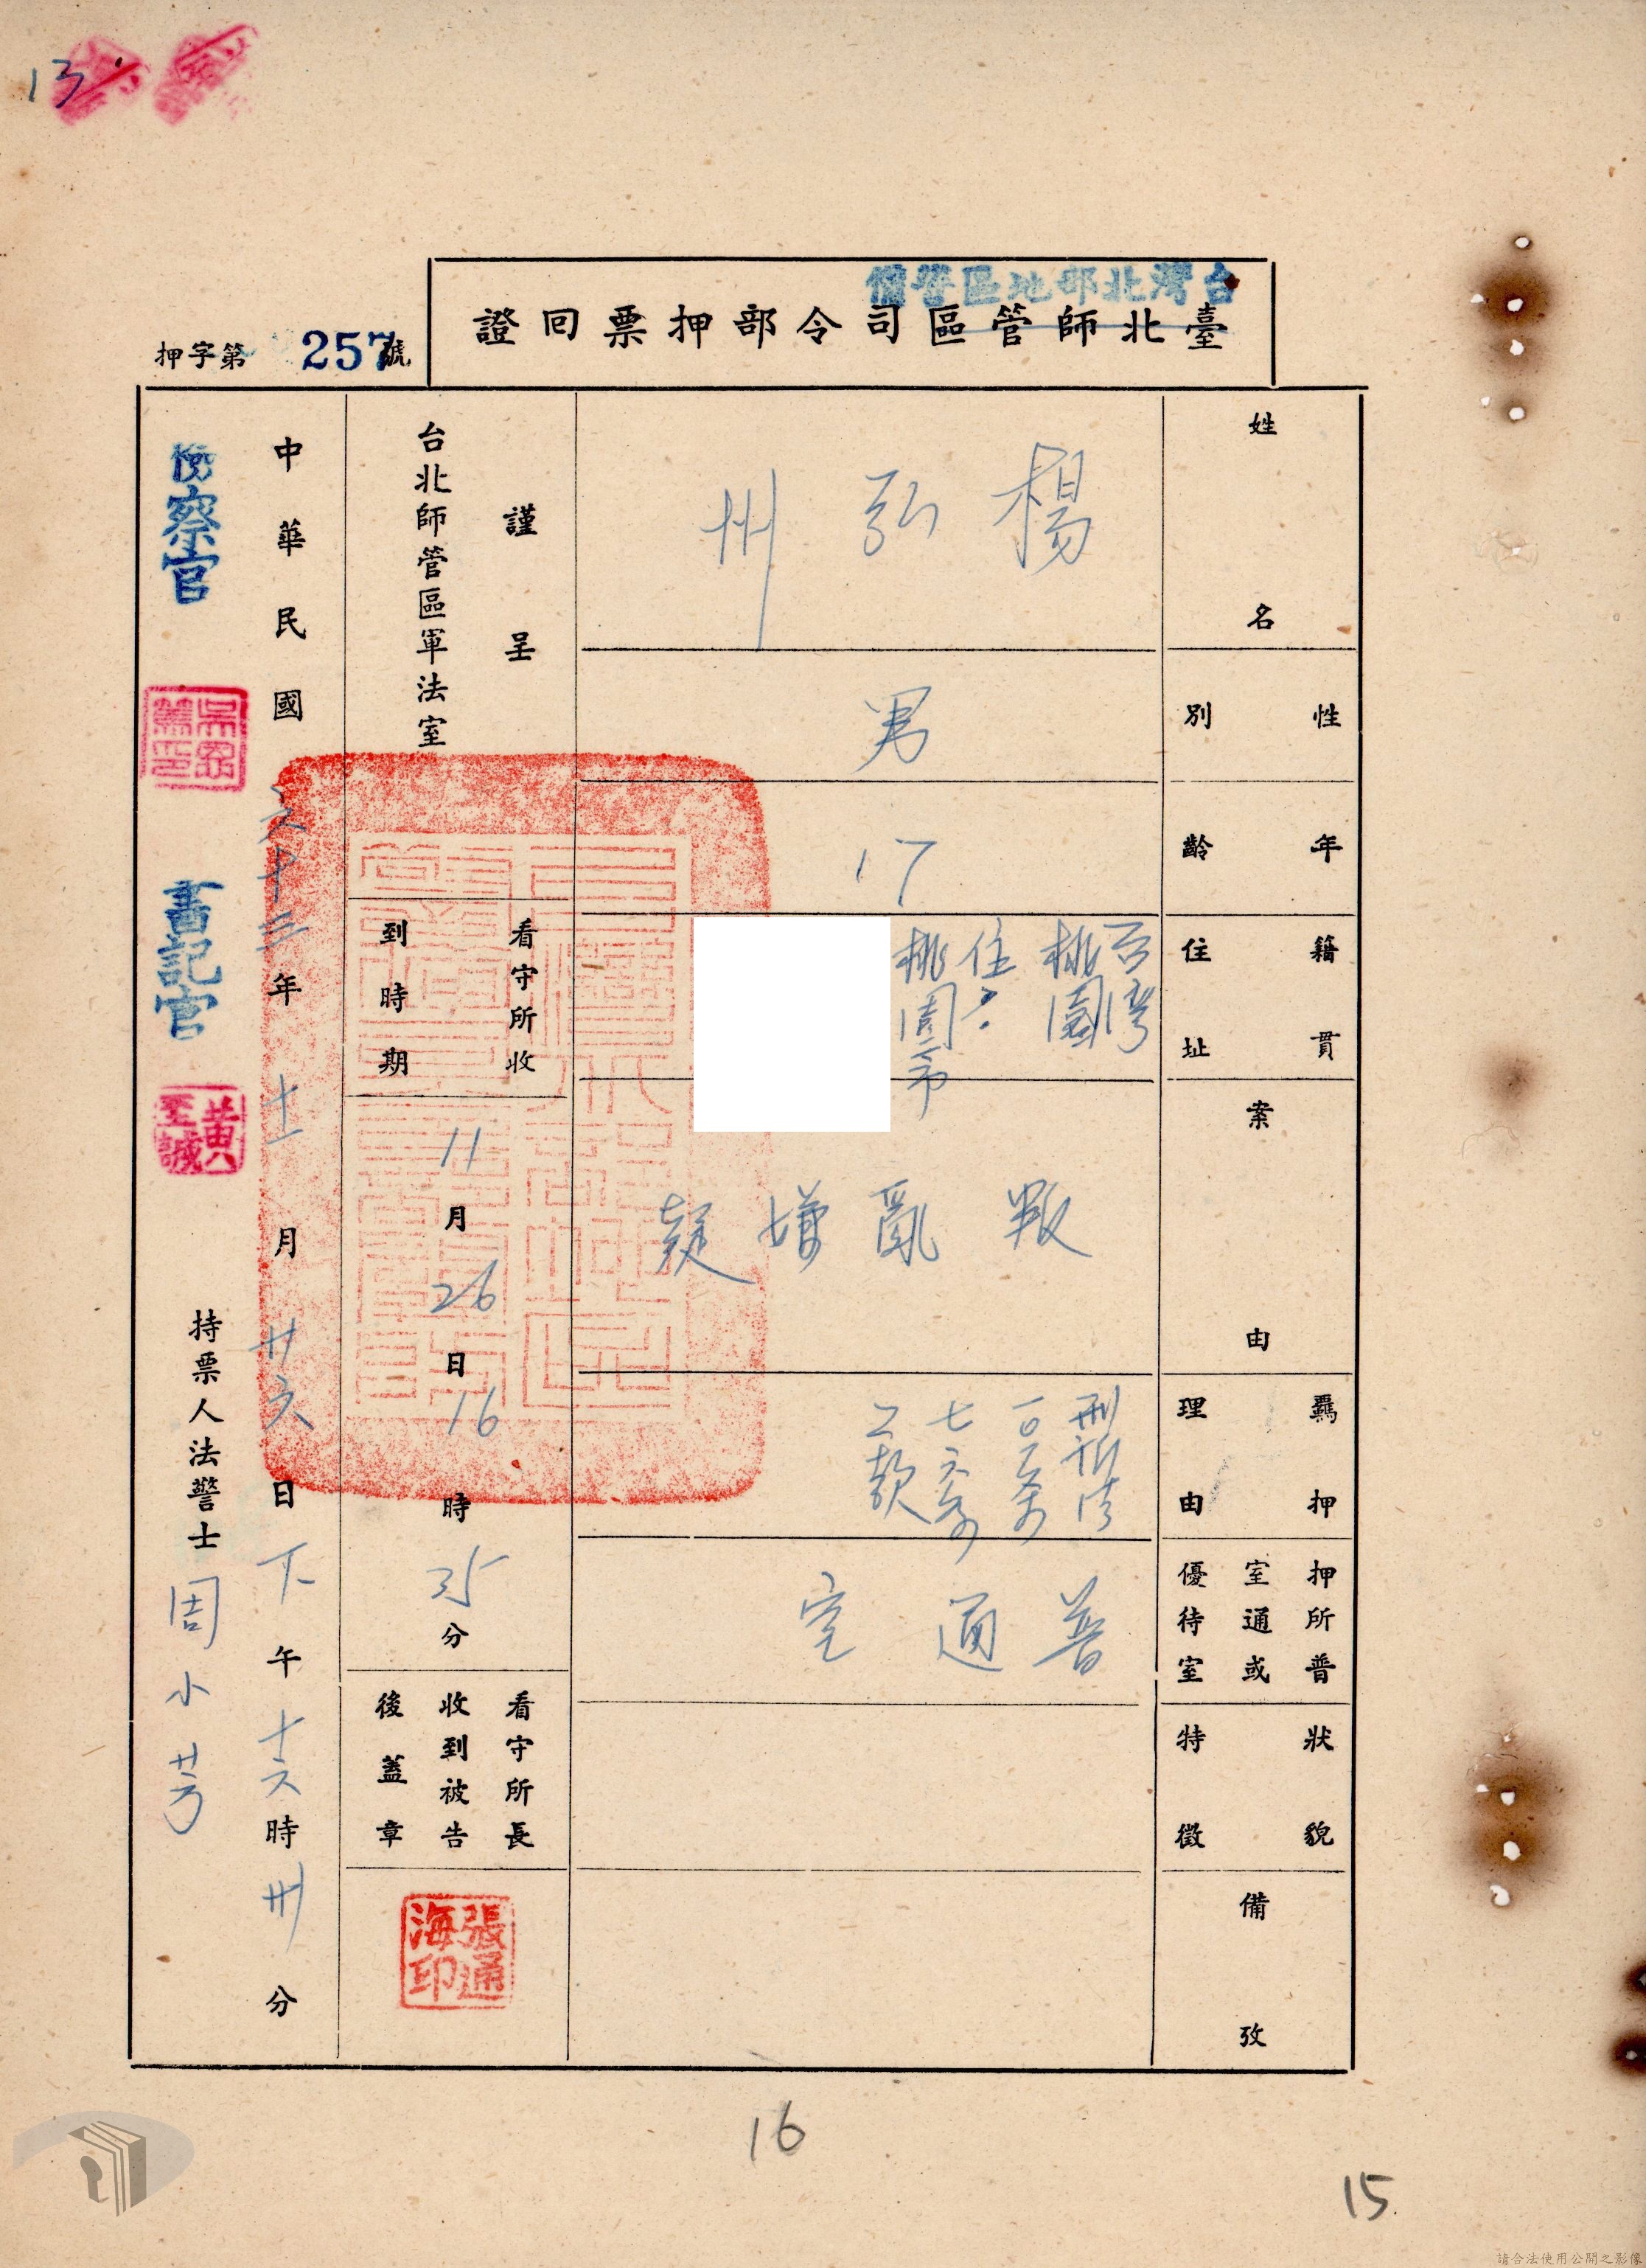 13
台灣北部地區警備
臺北師管區司令部押票回證
押字第 257 號
姓名
楊弘州
性別
男
年齡
17
籍貫
住址
台灣
桃園
住:
桃園市
案由
叛亂嫌疑
羈押理由
刑訴法
一〇一條
七六條
二款
押所普
室通或
優待室
普通室
狀貌
特徵
備攷
謹呈
台北師管區軍法室
看守所收
到時期
11月26日16時35分
看守所長
收到被告
後蓋章
張通海印
中華民國六十三年十一月廿六日下午十六時卅分
檢察官
書記官
黃至誠
持票人法警士周小芳
16
15
請合法使用公開之影像